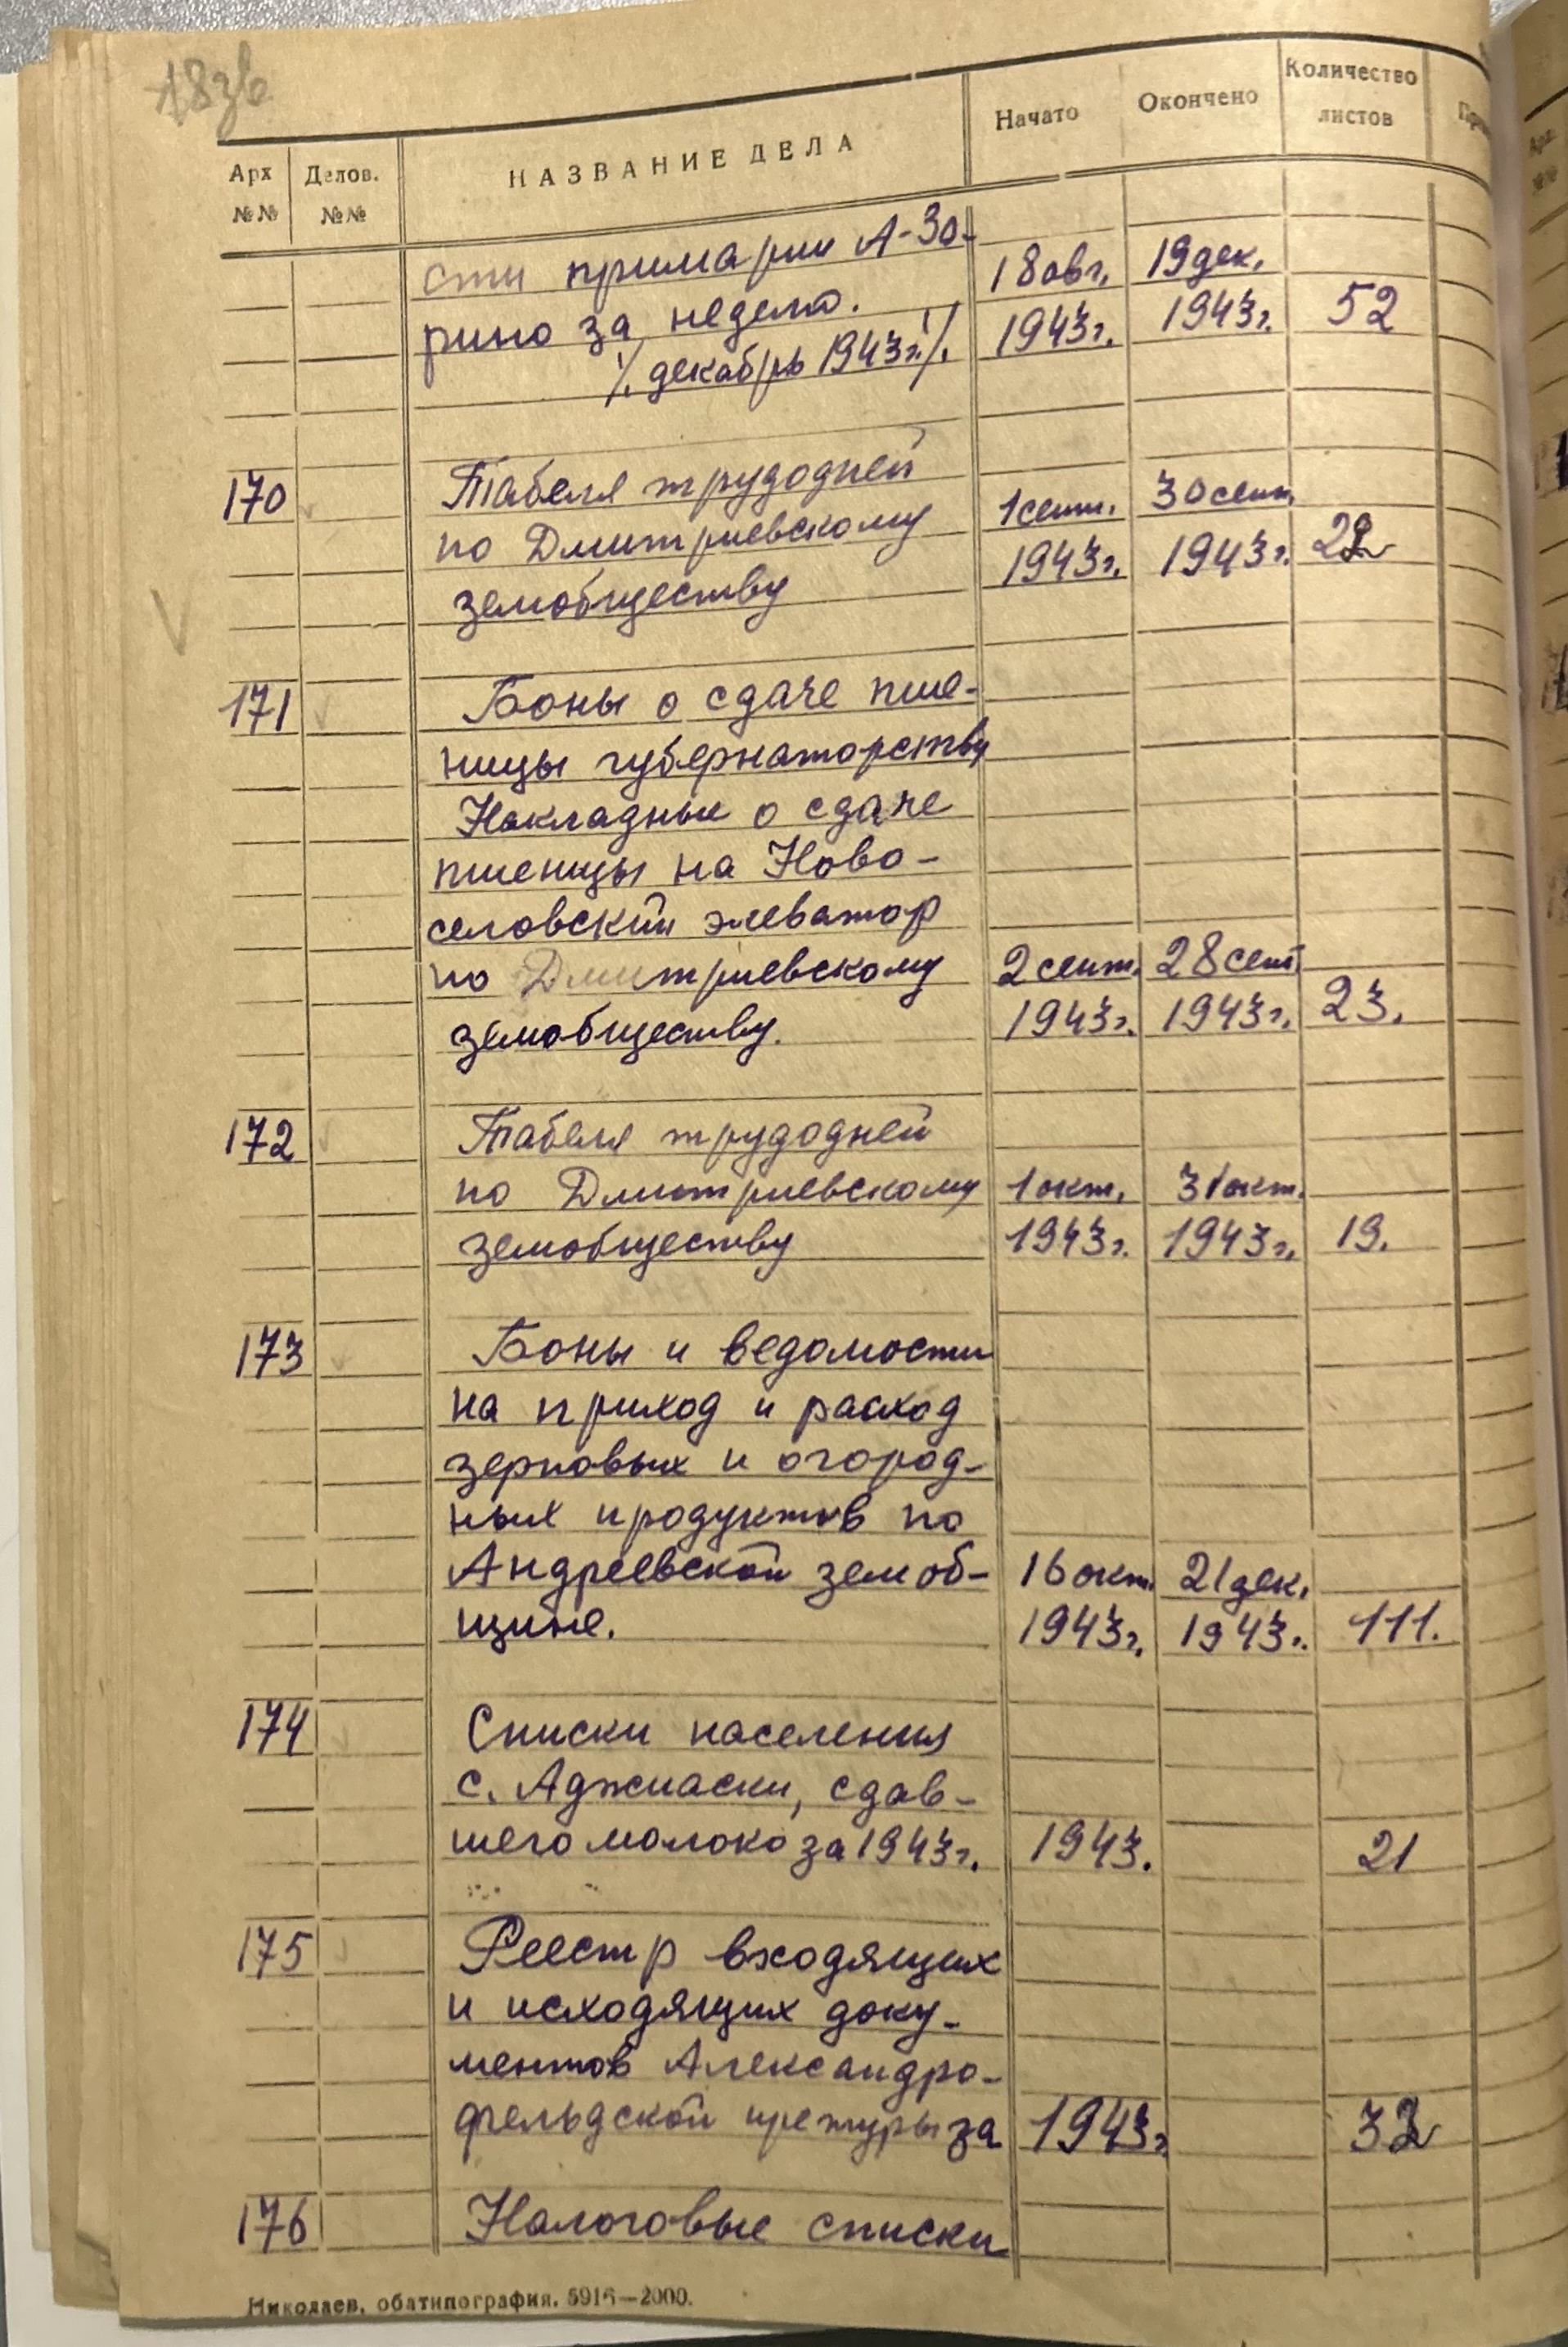 183в
Арх №№ Делов. №№ НАЗВАНИЕ ДЕЛА Начато Окончено Количество листов
сти примарии А-Зо- 18 авг. 19 дек.
рино за неделю. 1943г. 1943г. 52
/. декабрь 1943г./.
170 Табеля трудодней 1 сент. 30 сент.
по Дмитриевскому 1943г. 1943г. 22
земобществу
171 Боны о сдаче пше-
ницы губернаторству
Накладные о сдаче
пшеницы на Ново-
селовский элеватор
по Дмитриевскому 2 сент. 28 сент
земобществу. 1943г. 1943г. 23.
172 Табеля трудодней
по Дмитриевскому 1 окт. 31 окт.
земобществу 1943г. 1943г. 19.
173 Боны и ведомости
на приход и расход
зерновых и огород-
ных продуктов по
Андреевской земоб- 16 окт. 21 дек.
щине. 1943г. 1943г. 111.
174 Списки населения
с. Аджиаски, сдав-
шего молоко за 1943г. 1943. 21
175 Реестр входящих
и исходящих доку-
ментов Александро-
фельдской претуры за 1943г 32
176 Налоговые списки
Николаев, обатипография. 5916—2000.